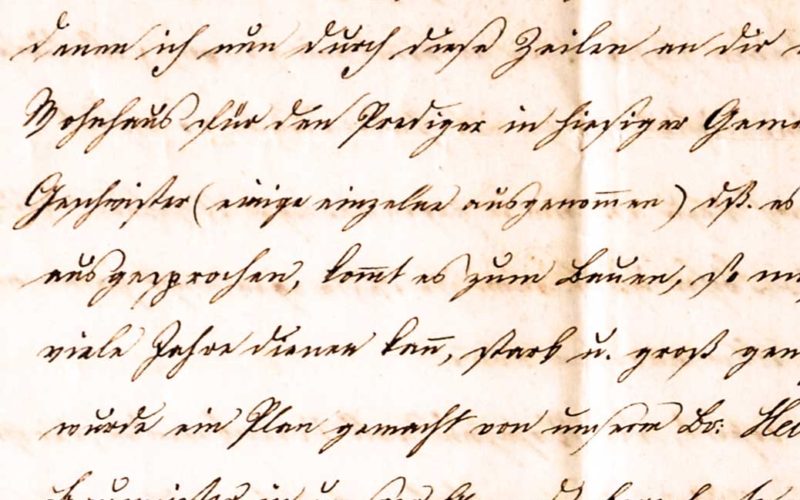 denen ich nun durch diese Zeilen an dir
Wohnhaus für den Prediger in hiesiger Geme
Geschwister (einige einzelne ausgenom̅en) dß. es
ausgesprochen, kom̅t es zum Bauen, so
viele Jahre dienen kan̅, stark u. groß gen
wurde ein Plan gemacht von unserm Br: Hei